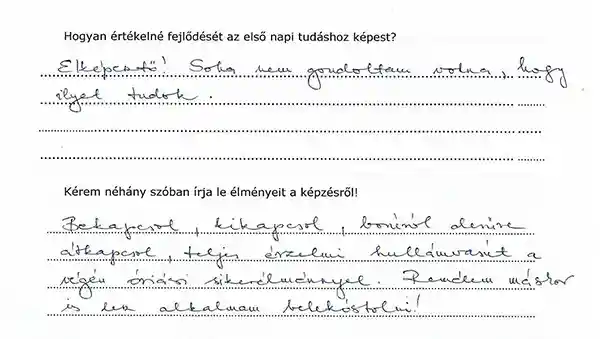 Hogyan értékelné fejlődését az első napi tudáshoz képest?
Elképesztő! Soha nem gondoltam volna, hogy
ilyet tudok.
Kérem néhány szóban írja le élményeit a képzésről!
Bekapcsol, kikapcsol, borúról derűre
átkapcsol, teljes érzelmi hullámvasút a
végén óriási sikerélménnyel. Remélem máskor
is lesz alkalmam belekóstolni!